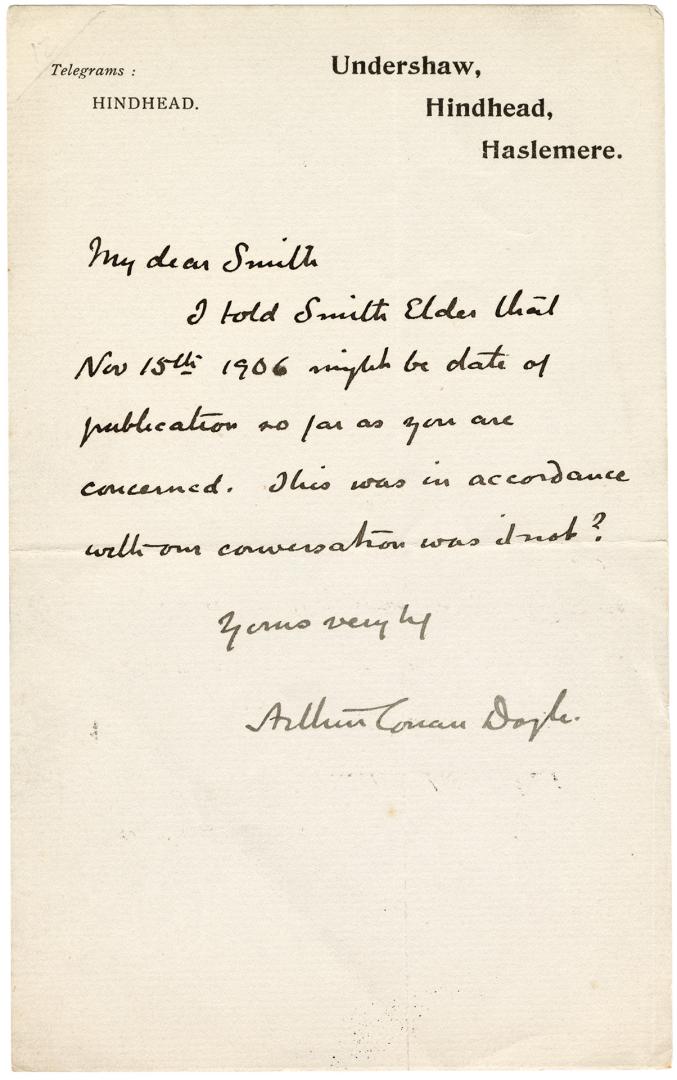 Telegrams :
HINDHEAD.
Undershaw,
Hindhead,
Haslemere.
My dear Smith
I told Smith Elder that
Nov 15th 1906 might be date of
publication so far as you are
concerned. This was in accordance
with our conversation was it not?
Yours very try
Arthur Conan Doyle.